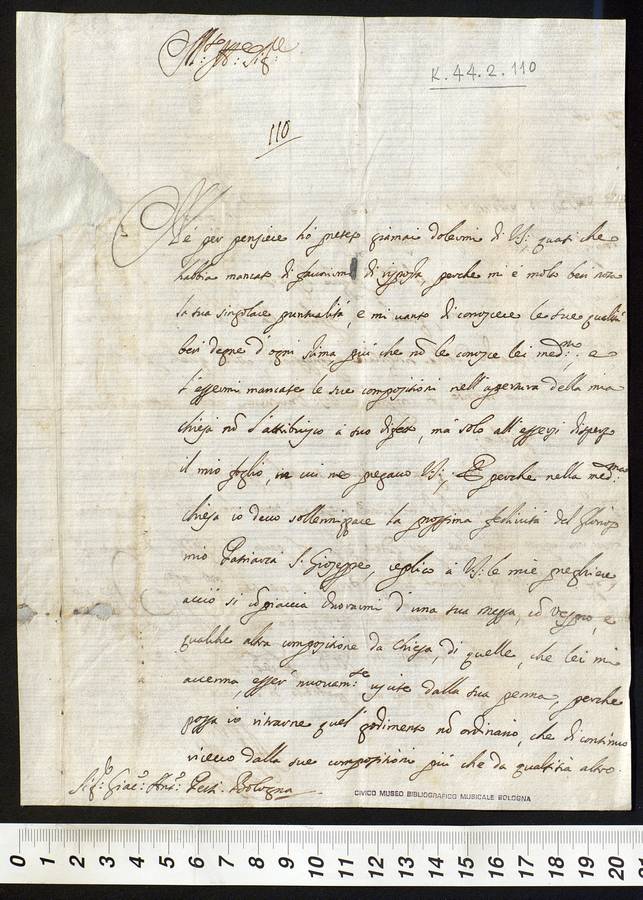 Sig:
K. 44. 2. 110
110
Ne per pensiere hò preteso giamai dolermi di VS: quasi che
habbia mancato di favorirmi di risposta, perche mi è molto ben nota
la sua singolare puntualità, e mi vanto di conoscere le sue qualità
ben degne d'ogni stima, più che nõ le conosce lei med:ma; e
l'essermi mancate le sue compositioni nell'apertura della mia
chiesa nõ l'attribuisco à suo difetto, mà solo all'essersi disperso
il mio foglio, in cui ne pregavo VS:; E perche nella med:ma
Chiesa io devo sollennizzare la prossima festività del glorioso
mio Patriarca S. Gioseppe, replico à VS: le mie preghiere,
acciò si cõpiaccia honorarmi d'una sua messa, cõ vespro, e
qualche altra compositione da Chiesa, di quelle, che lei mi
accenna, esser' nuovam:te uscite dalla sua penna, perche
possa io ritrarne quel godimento nõ ordinario, che di continuo
ricevo dalla sue compositioni più che da qualsisia altro.
Sig:r Giac:o Ant:o Perti. Bologna
CIVICO MUSEO BIBLIOGRAFICO MUSICALE BOLOGNA
0 1 2 3 4 5 6 7 8 9 10 11 12 13 14 15 16 17 18 19 20